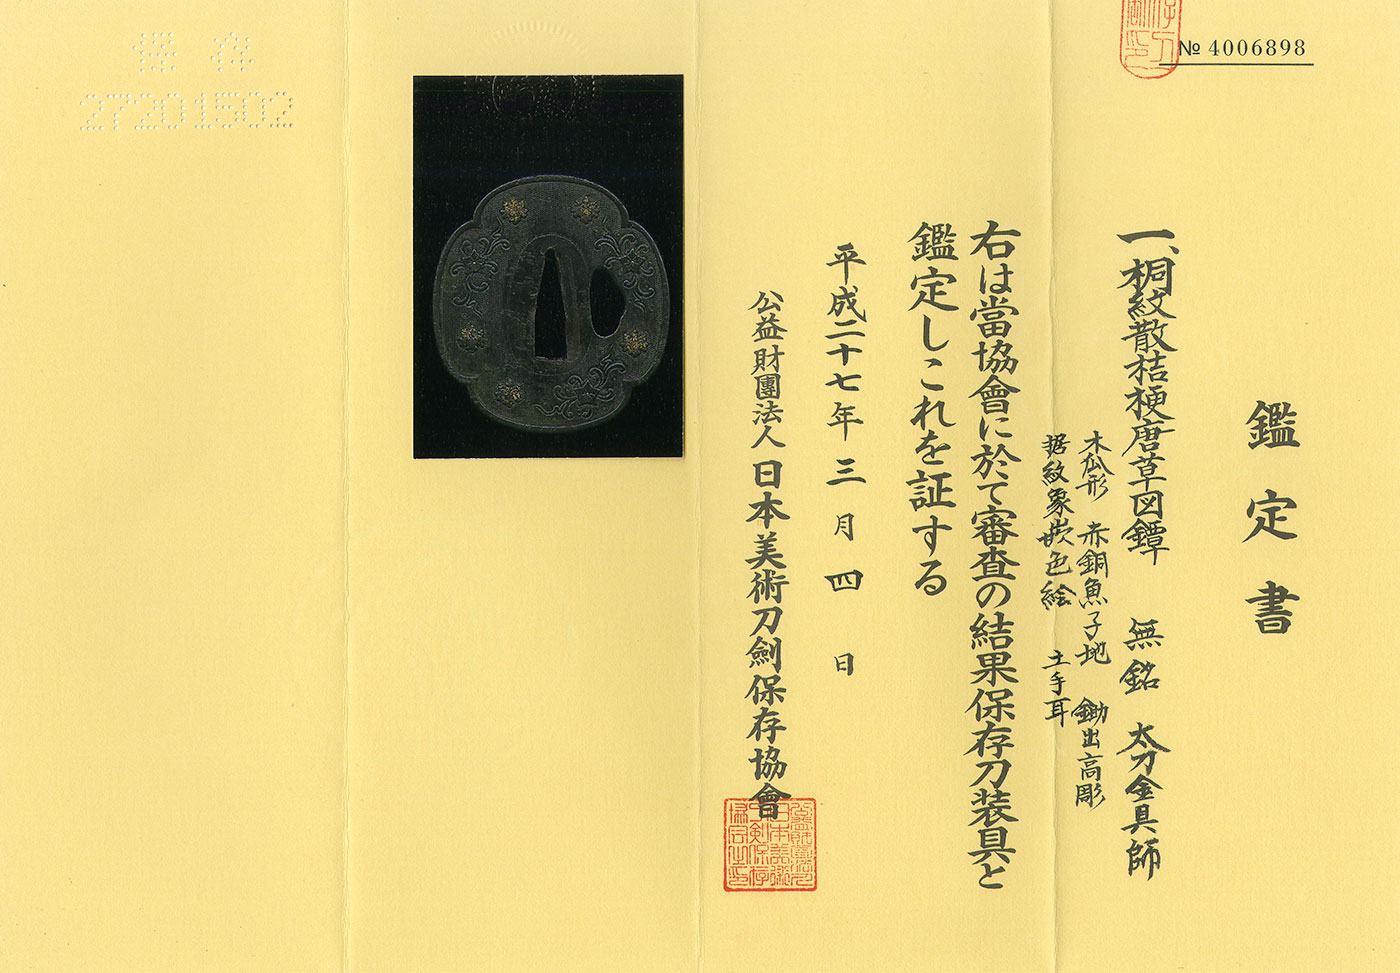 № 4006898
鑑定書
一、桐紋散桔梗唐草図鐔 無銘 太刀金具師
木瓜形 赤銅魚子地 鋤出高彫
据紋象嵌色絵 土手耳
右は當協會に於て審査の結果保存刀装具と
鑑定しこれを証する
平成二十七年三月四日
公益財團法人日本美術刀劍保存協會
保存
27201502